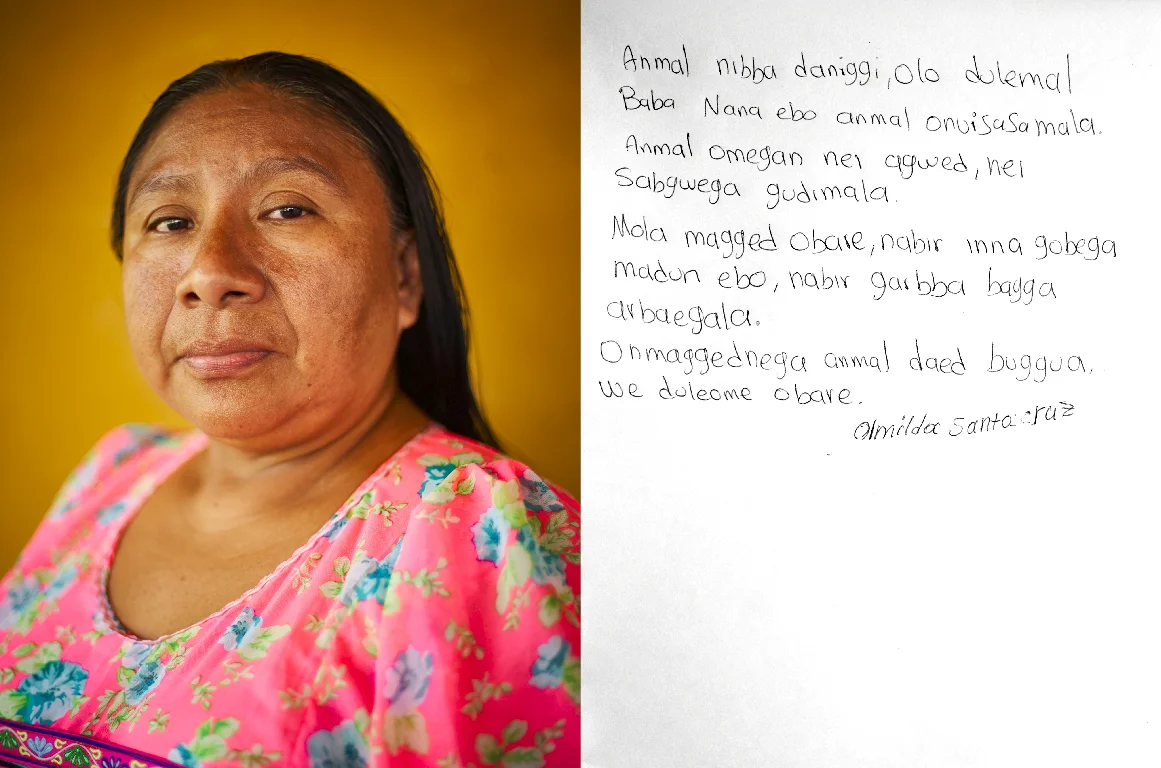 Anmal nibba daniggi, olo dulemal
Baba Nana ebo anmal onuisasamala.
Anmal omegan nei agwed, nei
Sabgwega gudimala.
Mola magged obare, nabir inna gobega
madun ebo, nabir garbba bagga
arbaegala.
Onmaggednega anmal daed buggua.
we duleome obare.
Olmilda Santacruz